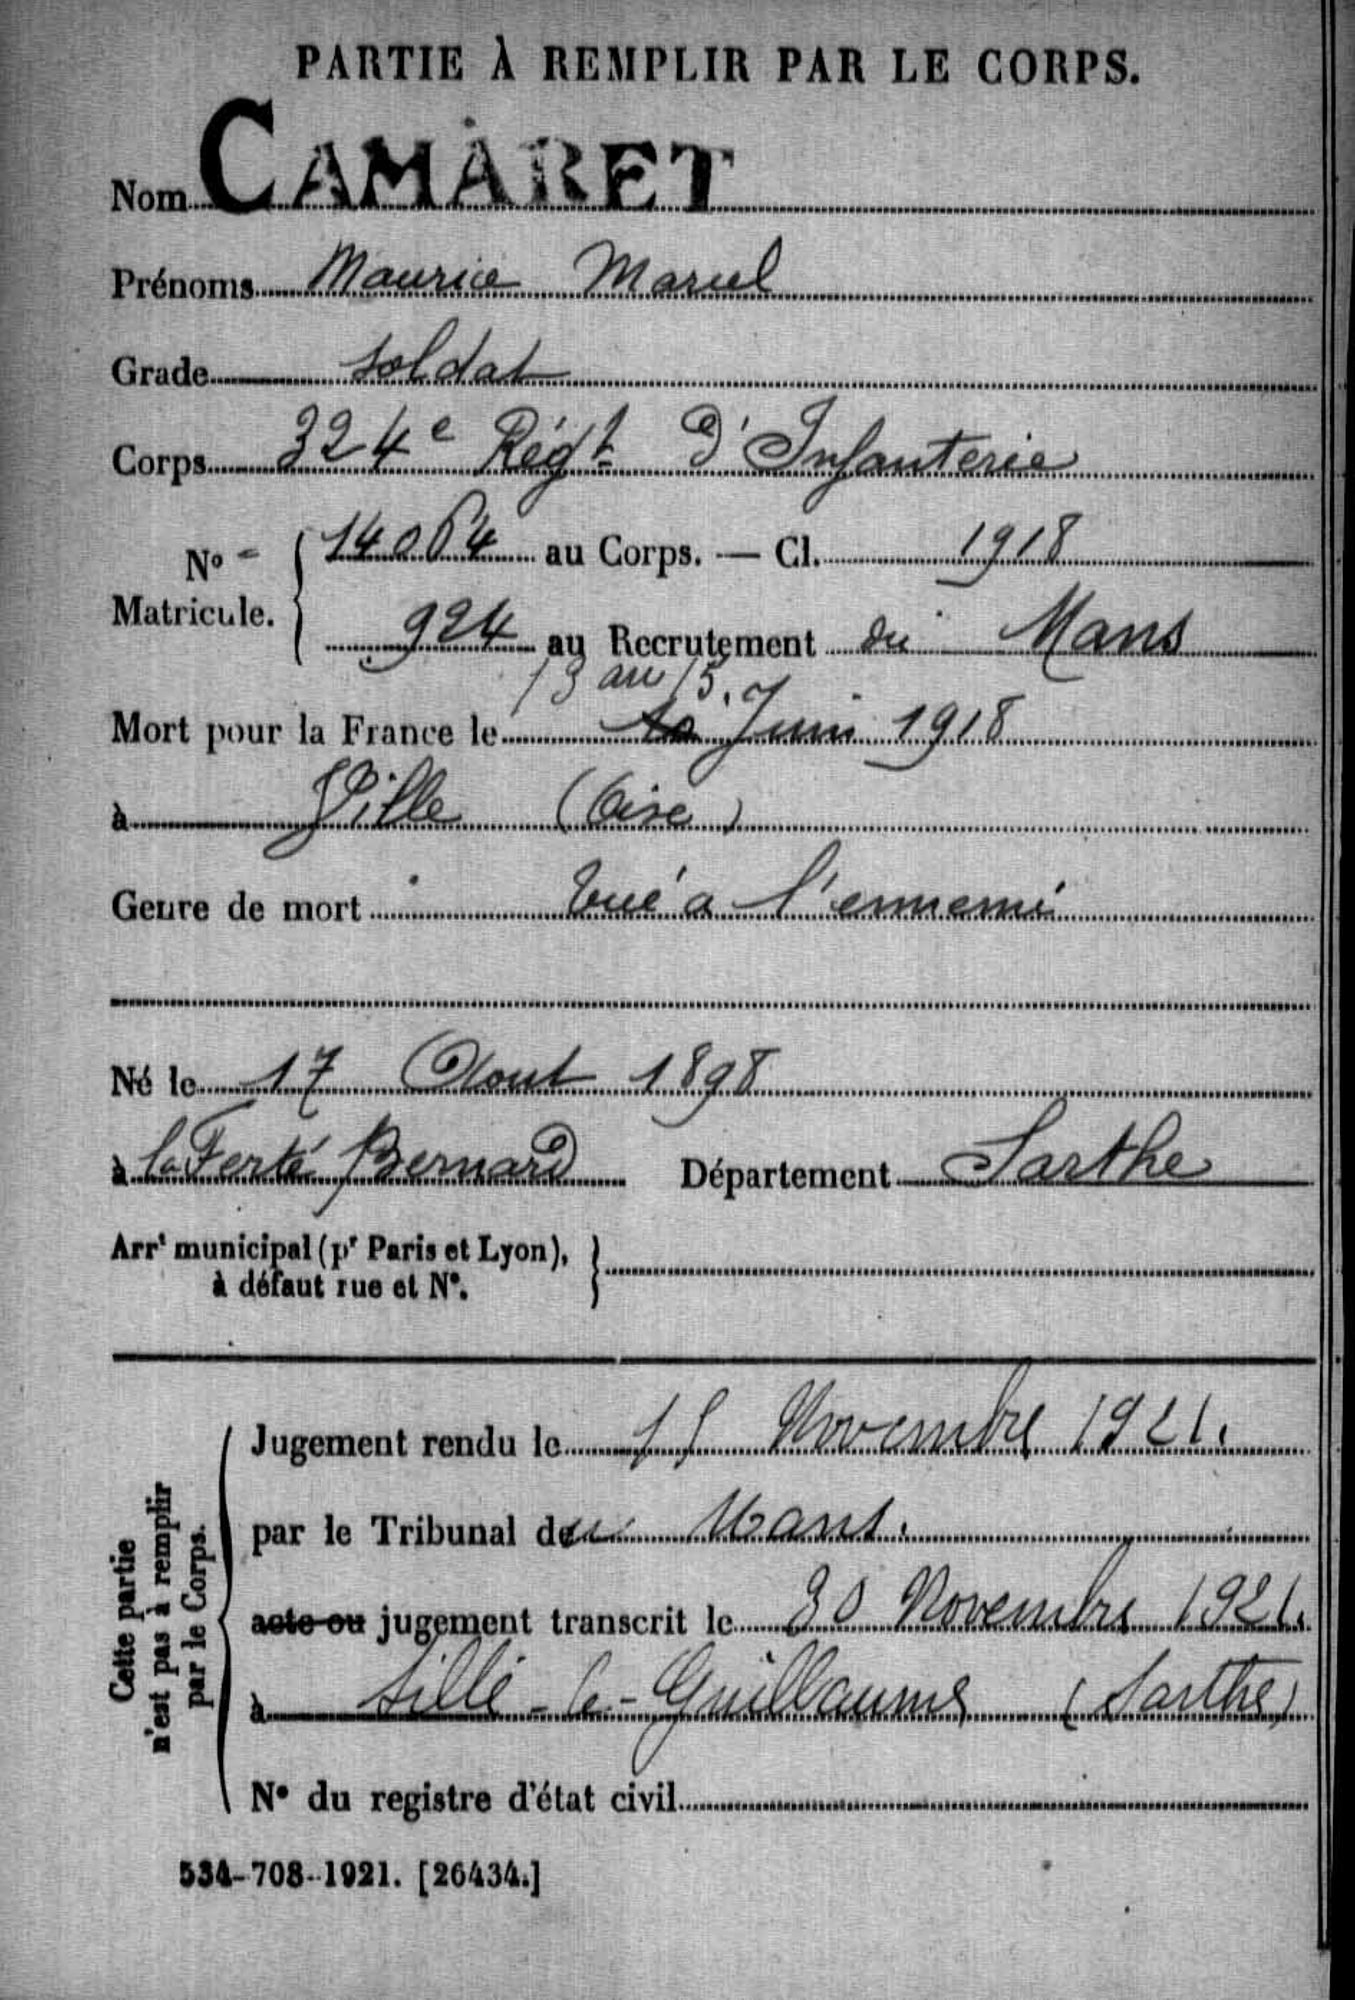 PARTIE À REMPLIR PAR LE CORPS.
Nom CAMARET
Prénoms Maurice Marcel
Grade soldat
Corps 324e Régt D'Infanterie
No Matricule. { 14064 au Corps. — Cl. 1918
924 au Recrutement du Mans
13 au 15.
Mort pour la France le 10 Juin 1918
à Ville (Oise)
Genre de mort tué a l'ennemi
Né le 17 Aout 1898
à la Ferté Bernard Département Sarthe
Arrt municipal (pr Paris et Lyon), }
à défaut rue et No.
Cette partie n'est pas à remplir par le Corps.
Jugement rendu le 15 Novembre 1921.
par le Tribunal du Mans.
acte ou jugement transcrit le 30 Novembre 1921.
à Sillé-le-Guillaume (Sarthe)
No du registre d'état civil
534-708-1921. [26434.]